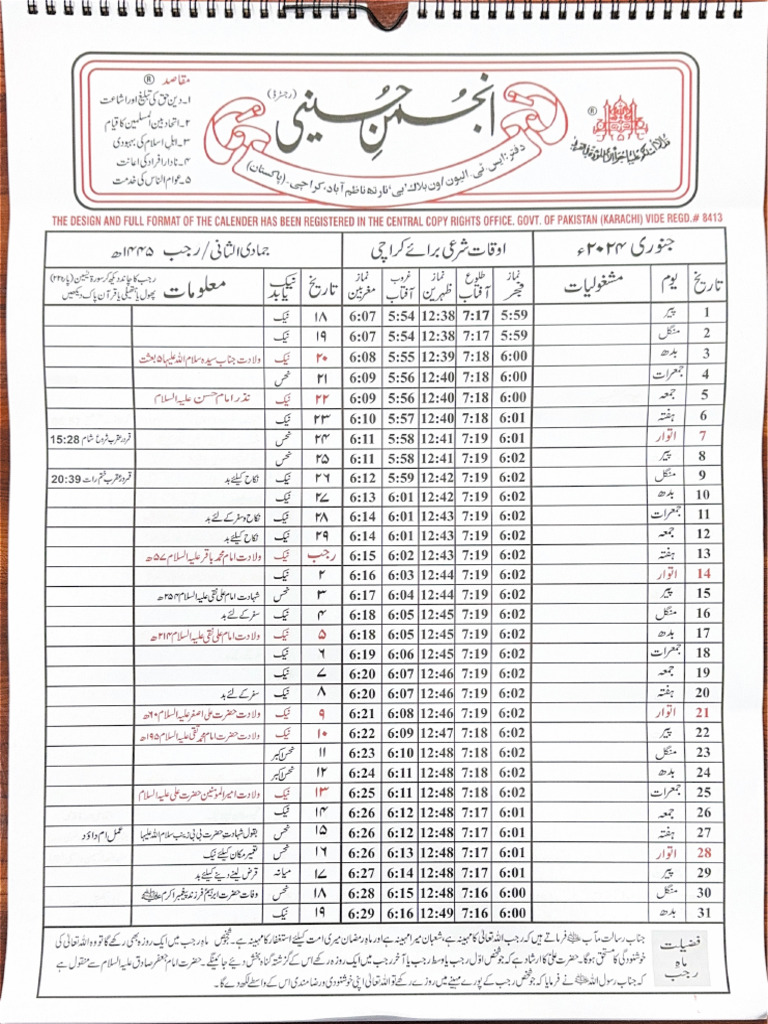 مقاصد ®
۱۔ دین حق کی تبلیغ اور اشاعت
۲۔ اتحاد بین المسلمین کا قیام
۳۔ اہل اسلام کی بہبودی
۴۔ نادار افراد کی اعانت
۵۔ عوام الناس کی خدمت
انجمن حسینی (رجسٹرڈ)
®
دفتر: ایس ٹی۔ الیون اون بلاک "بی" نارتھ ناظم آباد، کراچی۔ (پاکستان)
THE DESIGN AND FULL FORMAT OF THE CALENDER HAS BEEN REGISTERED IN THE CENTRAL COPY RIGHTS OFFICE. GOVT. OF PAKISTAN (KARACHI) VIDE REGD.# 8413
جنوری ۲۰۲۴ء اوقات شرعی برائے کراچی جمادی الثانی / رجب ۱۴۴۵ھ
تاریخ یوم مشغولیات نماز فجر طلوع آفتاب نماز ظہرین غروب آفتاب نماز مغربین تاریخ نیک یا بد معلومات رجب کا چاند دیکھ کر سورۃ یٰسین (پارہ ۲۲) پھول یا ہتھیلی یا قرآن پاک دیکھیں
1 پیر 5:59 7:17 12:38 5:54 6:07 ۱۸ نیک
2 منگل 5:59 7:17 12:38 5:54 6:07 ۱۹ نیک
3 بدھ 6:00 7:18 12:39 5:55 6:08 ۲۰ نیک ولادت جناب سیدہ سلام اللہ علیہا ۵ بعثت
4 جمعرات 6:00 7:18 12:40 5:56 6:09 ۲۱ نحس
5 جمعہ 6:00 7:18 12:40 5:56 6:09 ۲۲ نیک نذر امام حسن علیہ السلام
6 ہفتہ 6:01 7:18 12:40 5:57 6:10 ۲۳ نیک
7 اتوار 6:01 7:19 12:41 5:58 6:11 ۲۴ نحس قمر در عقرب شروع شام 15:28
8 پیر 6:02 7:19 12:41 5:58 6:11 ۲۵ نحس
9 منگل 6:02 7:19 12:42 5:59 6:12 ۲۶ نیک نکاح کیلئے بد قمر در عقرب ختم رات 20:39
10 بدھ 6:02 7:19 12:42 6:01 6:13 ۲۷ نیک
11 جمعرات 6:02 7:19 12:43 6:01 6:14 ۲۸ نیک نکاح و سفر کے لئے بد
12 جمعہ 6:02 7:19 12:43 6:01 6:14 ۲۹ نیک نکاح کیلئے بد
13 ہفتہ 6:02 7:19 12:43 6:02 6:15 رجب نیک ولادت امام محمد باقر علیہ السلام ۵۷ھ
14 اتوار 6:02 7:19 12:44 6:03 6:16 ۲ نیک
15 پیر 6:02 7:19 12:44 6:04 6:17 ۳ نحس شہادت امام علی نقی علیہ السلام ۲۵۴ھ
16 منگل 6:02 7:19 12:45 6:05 6:18 ۴ نیک سفر کے لئے بد
17 بدھ 6:02 7:19 12:45 6:05 6:18 ۵ نیک ولادت امام علی نقی علیہ السلام ۲۱۴ھ
18 جمعرات 6:02 7:19 12:45 6:06 6:19 ۶ نیک
19 جمعہ 6:02 7:19 12:46 6:07 6:20 ۷ نیک
20 ہفتہ 6:02 7:19 12:46 6:07 6:20 ۸ نیک سفر کے لئے بد
21 اتوار 6:02 7:19 12:46 6:08 6:21 ۹ نیک ولادت حضرت علی اصغر علیہ السلام ۶۰ھ
22 پیر 6:02 7:18 12:47 6:09 6:22 ۱۰ نیک ولادت حضرت امام محمد تقی علیہ السلام ۱۹۵ھ
23 منگل 6:02 7:18 12:48 6:10 6:23 ۱۱ نحس اکبر
24 بدھ 6:02 7:18 12:48 6:11 6:24 ۱۲ نحس اکبر
25 جمعرات 6:02 7:18 12:48 6:11 6:25 ۱۳ نیک ولادت امیر المومنین حضرت علی علیہ السلام
26 جمعہ 6:01 7:17 12:48 6:12 6:26 ۱۴ نیک
27 ہفتہ 6:01 7:17 12:48 6:12 6:26 ۱۵ نحس بقول شہادت حضرت بی بی زینب سلام اللہ علیہا عمل ام داؤد
28 اتوار 6:01 7:17 12:48 6:13 6:26 ۱۶ نحس تعمیر مکان کیلئے نیک
29 پیر 6:01 7:17 12:48 6:14 6:27 ۱۷ میانہ قرض لینے دینے کیلئے بد
30 منگل 6:00 7:16 12:48 6:15 6:28 ۱۸ نحس وفات حضرت ابراہیم فرزند پیغمبر اکرم ﷺ
31 بدھ 6:00 7:16 12:49 6:16 6:29 ۱۹ نیک
فضیلت ماہ رجب
جناب رسالت مآب ﷺ فرماتے ہیں کہ رجب اللہ تعالیٰ کا مہینہ ہے، شعبان میرا مہینہ ہے اور ماہ رمضان میری امت کیلئے استغفار کا مہینہ ہے۔ جو شخص ماہ رجب میں ایک روزہ بھی رکھے گا تو وہ اللہ تعالیٰ کی
خوشنودگی کا مستحق ہوگا۔ حضرت علیؑ کا ارشاد ہے کہ جو شخص اول رجب یا وسط رجب یا آخر رجب میں ایک روزہ رکھے اس کے گزشتہ گناہ بخش دیئے جائینگے۔ حضرت امام جعفر صادق علیہ السلام سے منقول ہے
کہ جناب رسول اللہ ﷺ نے فرمایا کہ جو شخص رجب کے پورے مہینے میں روزے رکھے تو اللہ تعالیٰ اپنی خوشنودی و رضا مندی اس کے واسطے لکھ دے گا۔